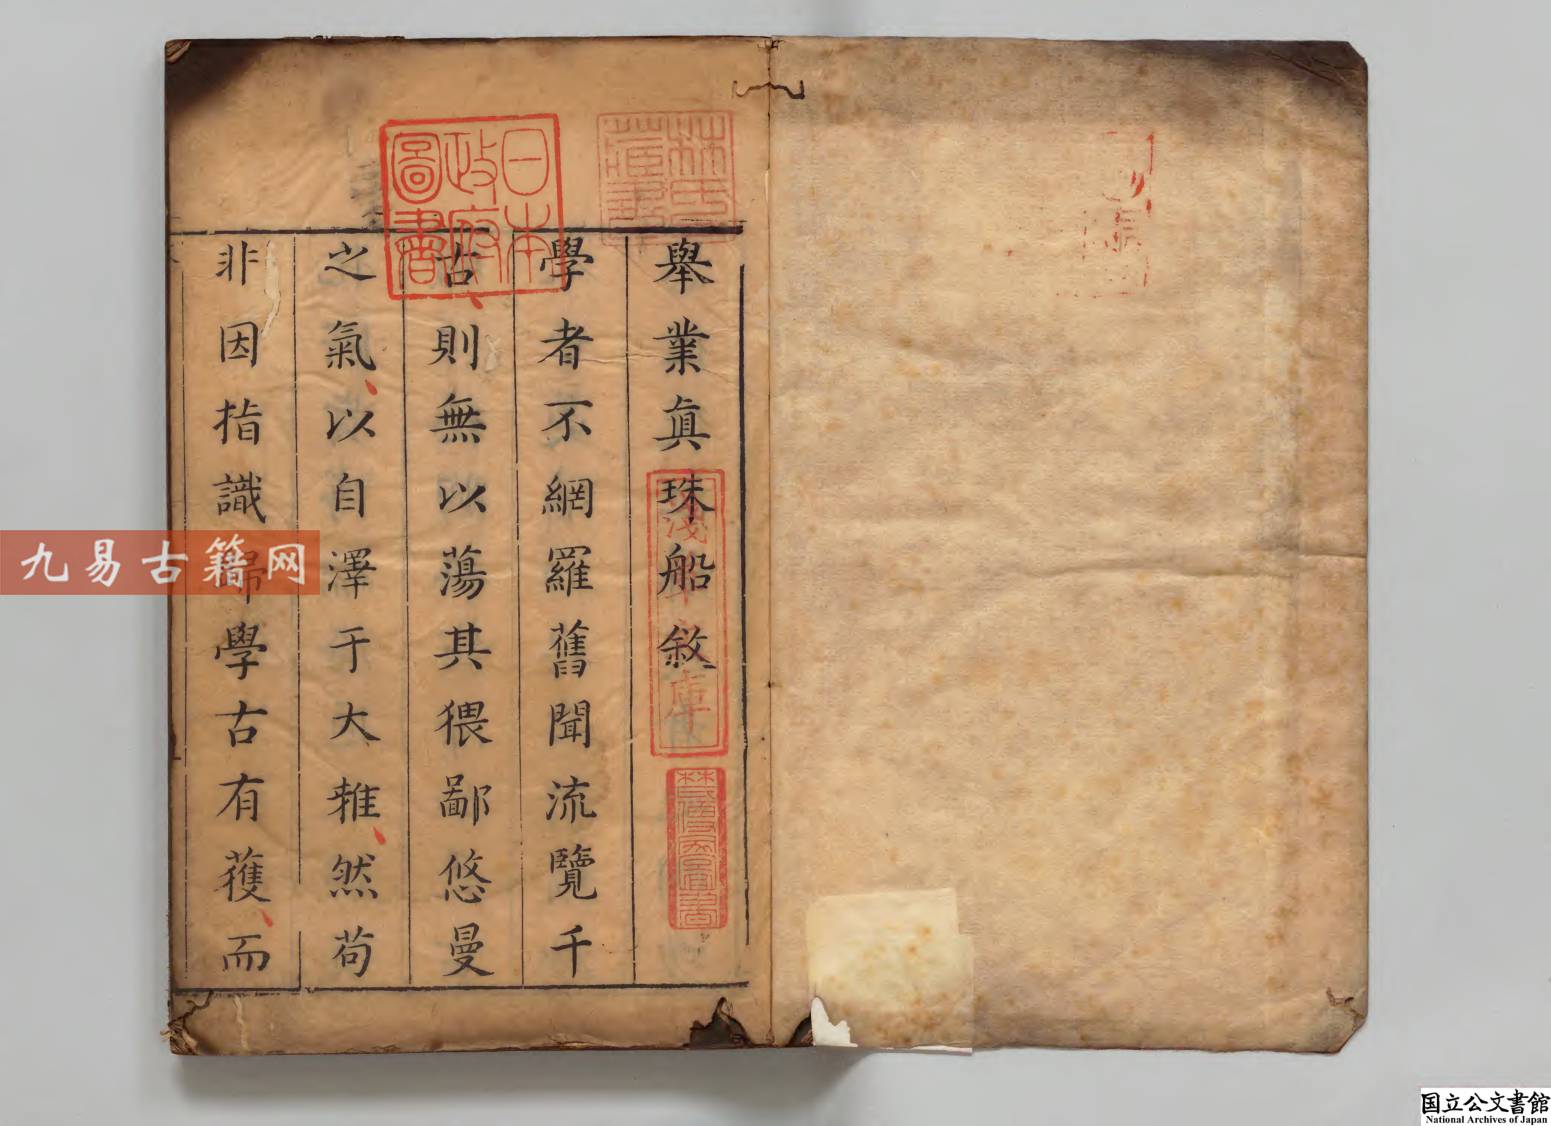 舉業眞珠船敘
學者不網羅舊聞流覽千
古則無以蕩其猥鄙悠曼
之氣以自澤于大雅然苟
非因指識歸學古有獲而
日本政府圖書
林氏藏書
淺草文庫
九易古籍网
国立公文書館
National Archives of Japan